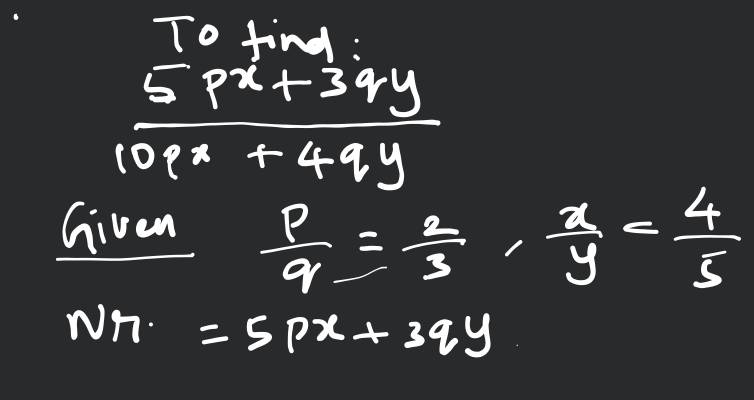 To find:
5px+3qy
10px + 4qy
Given p/q = 2/3, x/y = 4/5
Nr. = 5px+3qy